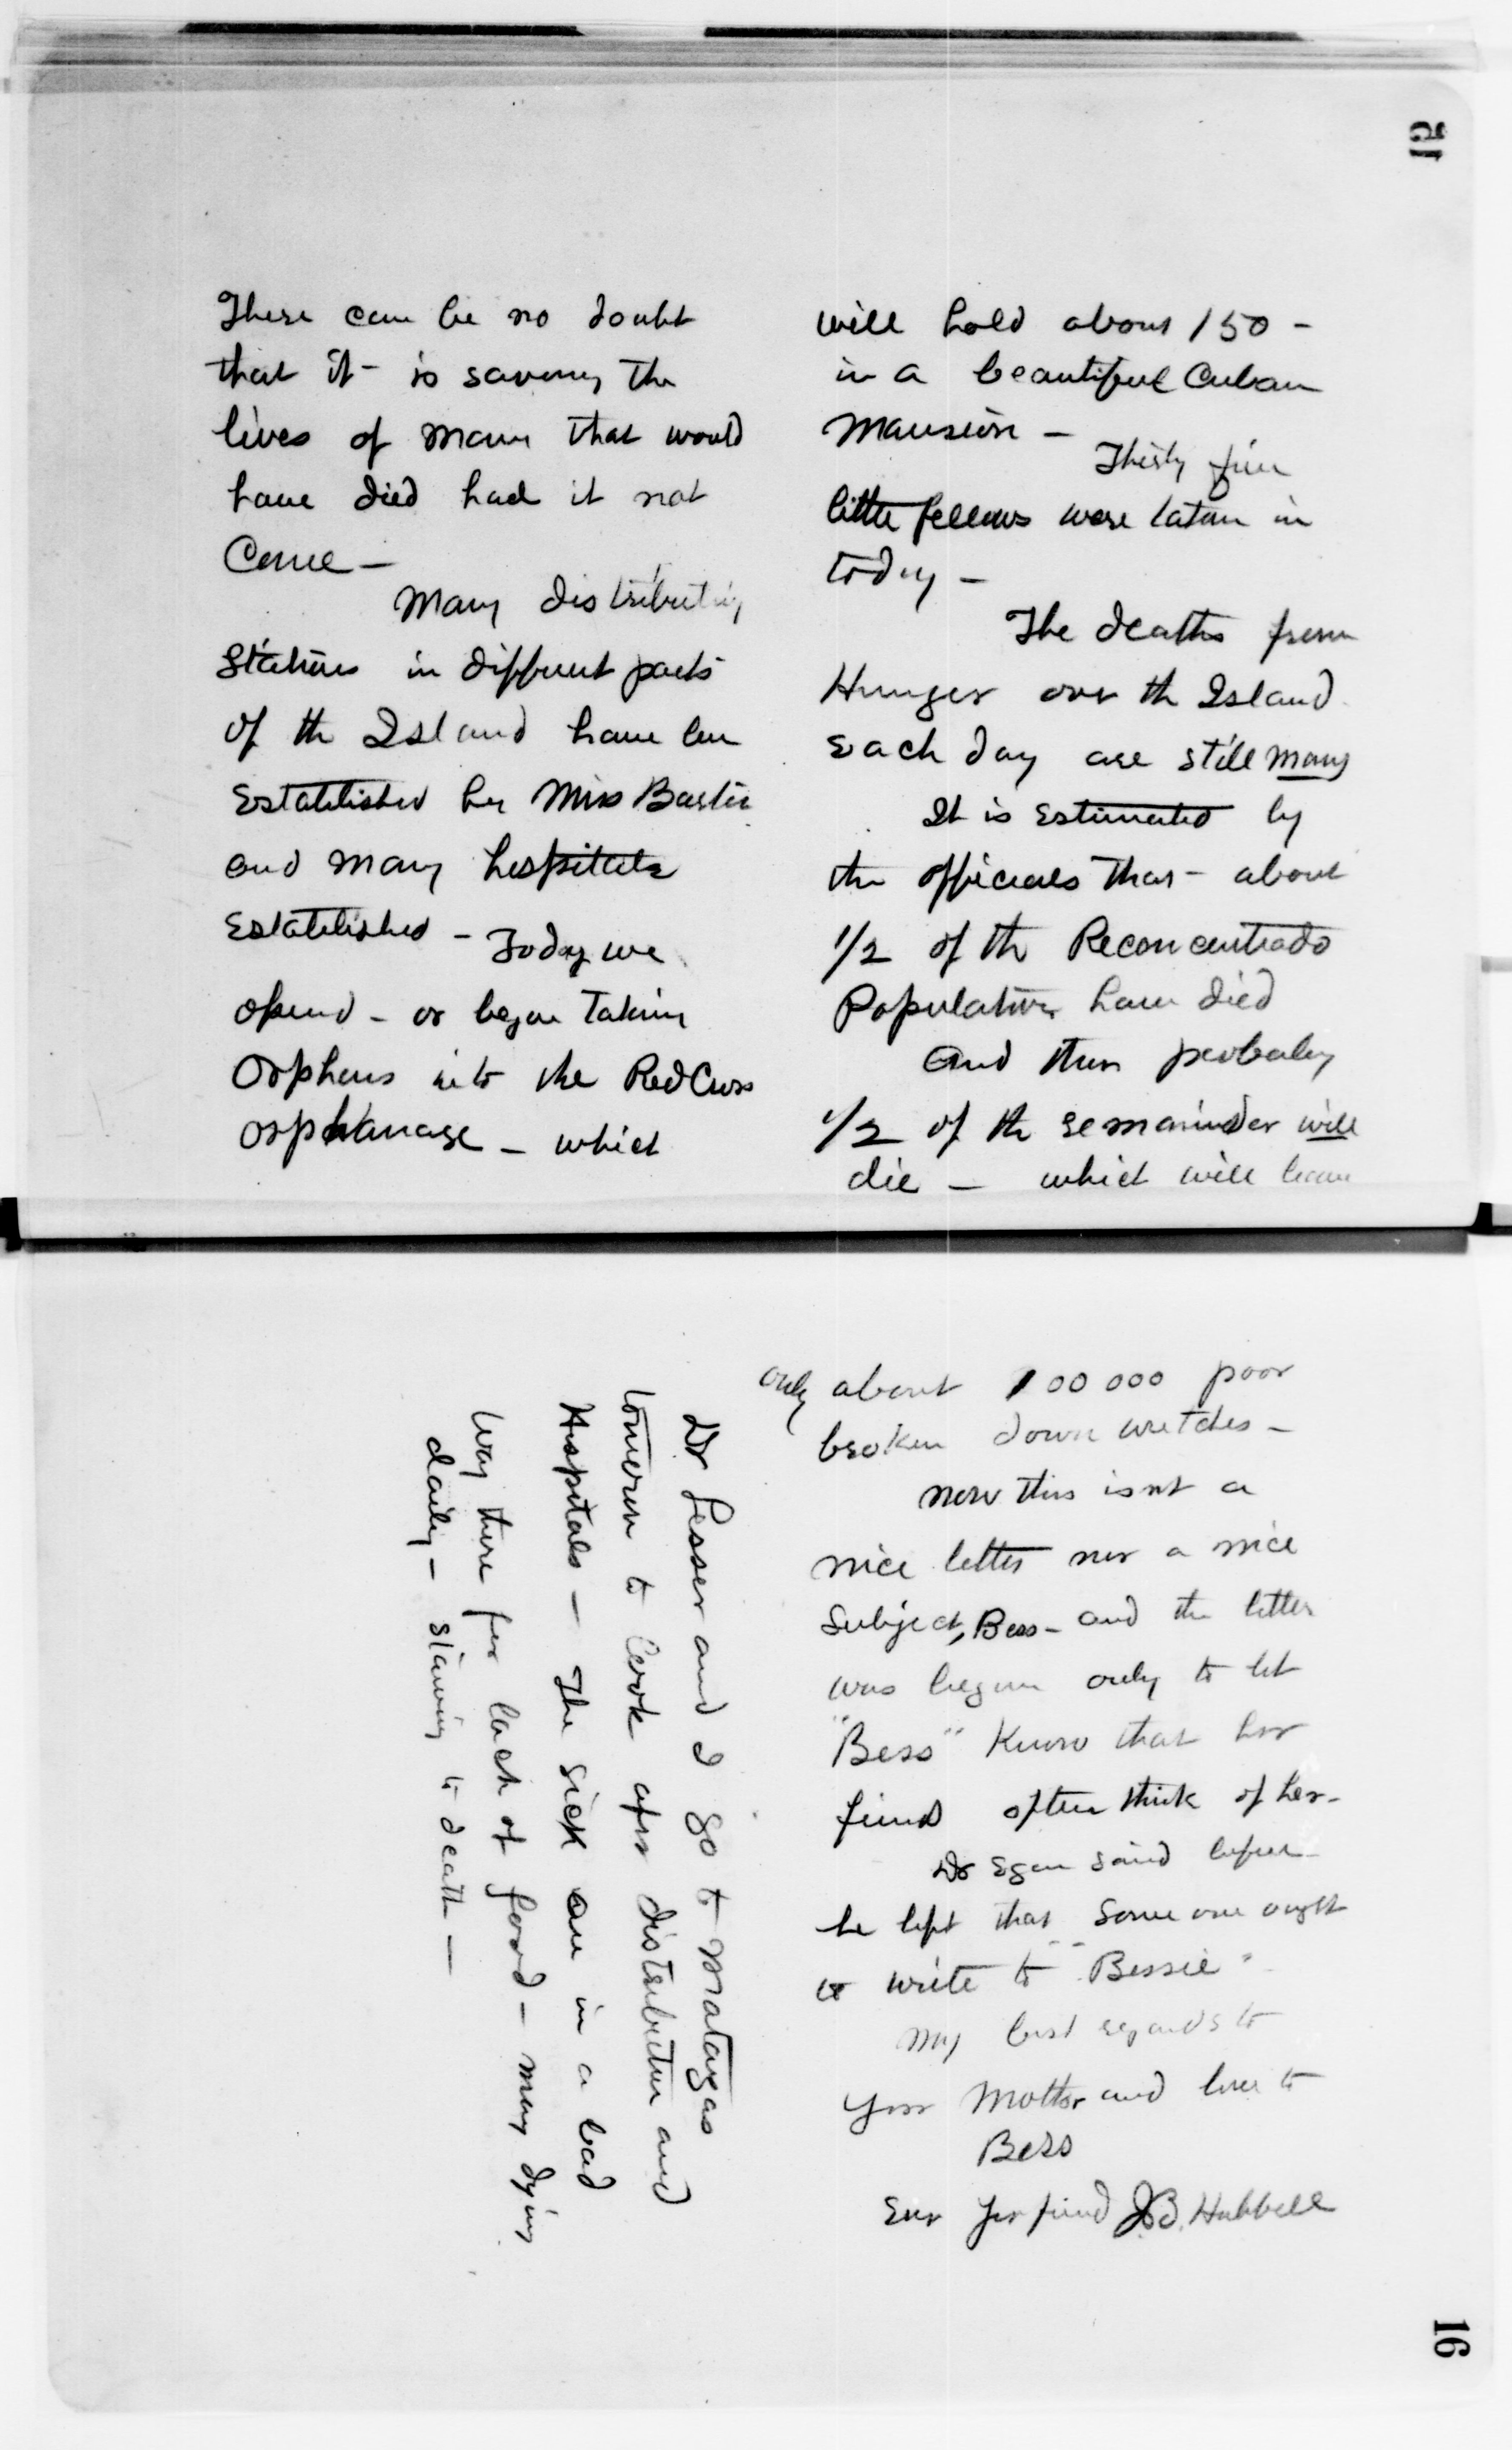 15
There can be no doubt
that it - is saving the
lives of many that would
have died had it not
come -
Many distributing
Stations in different parts
of the Island have been
established by Miss Barton
and many hospitals
established - Today we
opened - or began taking
orphans into the Red Cross
orphanage - which
will hold about 150 -
in a beautiful Cuban
Mansion -
Thirty five
little fellows were taken in
today -
The deaths from
Hunger over the Island
each day are still many
It is estimated by
the officials that - about
1/2 of the Reconcentrado
Population have died
and then probably
1/2 of the remainder will
die - which will leave
only about 100 000 poor
broken down wretches -
now this isnt a
nice letter nor a nice
subject, Bess - and the letter
was begun only to let
"Bess" know that her
friends often think of her -
Dr Egan said before
he left that some one ought
to write to "Bessie"
My best regards to
your Mother and love to
Bess
Ever yr friend J.B. Hubbell
Dr Lesser and I go to Matanzas
tomorrow to look after distribution and
Hospitals - The sick are in a bad
way there for lack of food - many dying
daily - starving to death -
16